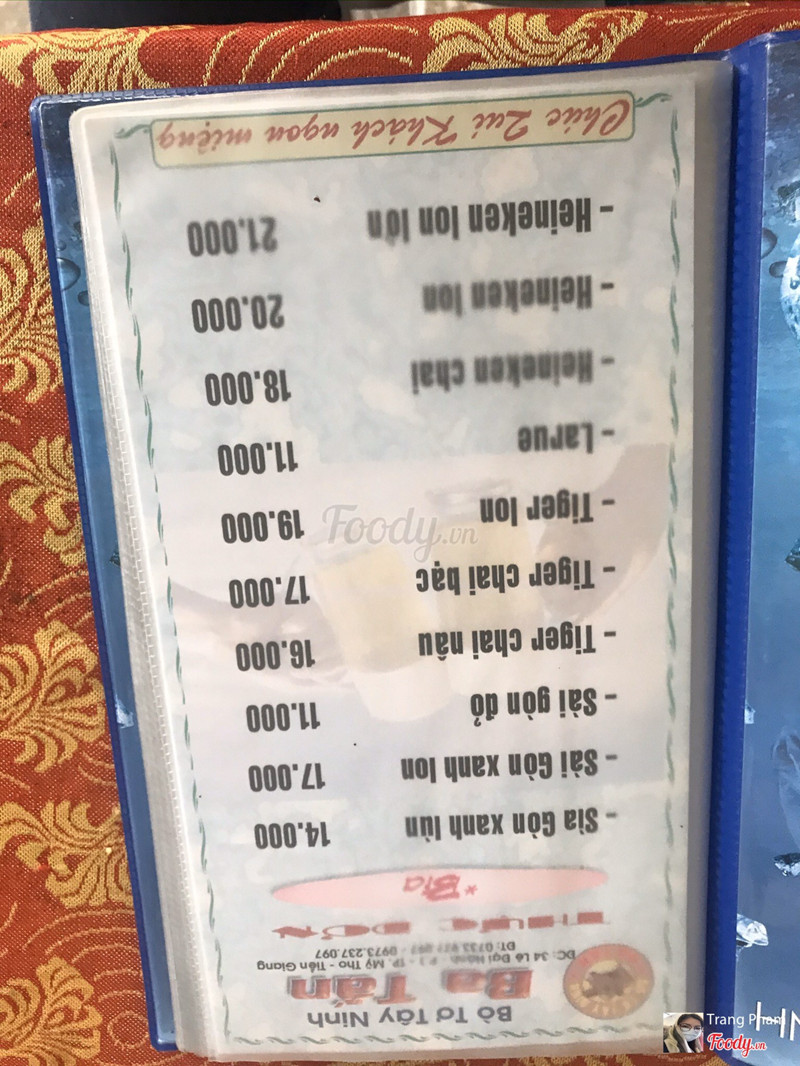 Bò Tơ Tây Ninh
Ba Tấn
ĐC: 34 Lê Đại Hành - P.1 - TP. Mỹ Tho - Tiền Giang
ĐT: 0733 - 0973.237.097
THỰC ĐƠN
*Bia
- Sia Gòn xanh lùn 14.000
- Sài Gòn xanh lon 17.000
- Sài gòn đỏ 11.000
- Tiger chai nâu 16.000
- Tiger chai bạc 17.000
- Tiger lon 19.000
- Larue 11.000
- Heineken chai 18.000
- Heineken lon 20.000
- Heineken lon lớn 21.000
Chúc Quí Khách ngon miệng
Foody.vn
Trang Pham
Foody.vn